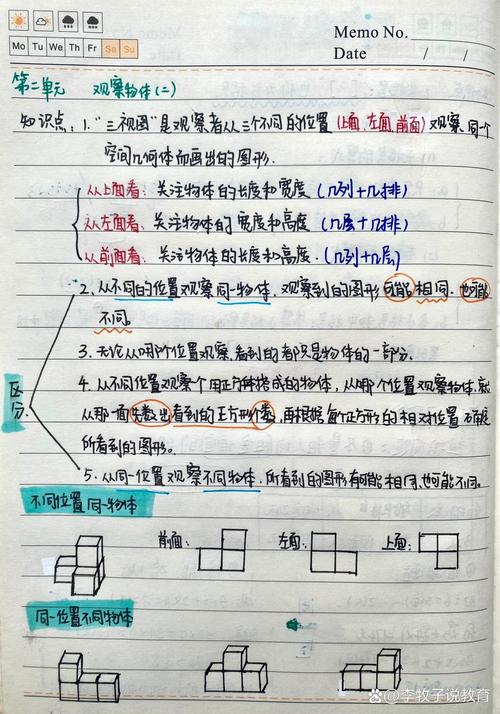 Memo No.
Mo Tu We Th Fr Sa Su
Date / /
第二单元 观察物体(二)
知识点:1."三视图"是观察者从三个不同的位置(上面、左面、前面)观察同一个
空间几何体而画出的图形.
从上面看:关注物体的长度和宽度(几列+几排)
从左面看:关注物体的宽度和高度(几层+几排)
从前面看:关注物体的长度和高度.(几列+几层)
2、从不同的位置观察同一物体,观察到的图形可能相同.也可能
不同。
3.无论从哪个位置观察,看到的都只是物体的一部分.
区分
4.从不同位置观察个用正方体搭成的物体,从哪个位置观察物体,就
从那一面先数出看到的正方形个数,再根据每个正方形的相对位置
所看到的图形。
5.从同一位置观察不同物体,所看到的图形有可能相同,也可能不同。
不同位置同一物体
前面: 左面: 上面:
同一位置不同物体
李牧子说教育